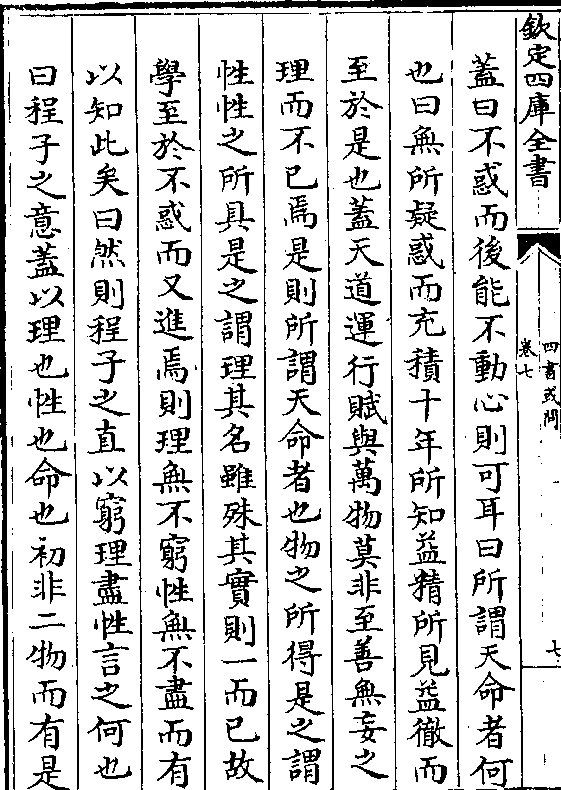 欽定四庫全書
四書或問
卷七
七
蓋曰不惑而後能不動心則可耳曰所謂天命者何
也曰無所疑惑而充積十年所知益精所見益徹而
至於是也蓋天道運行賦與萬物莫非至善無妄之
理而不已焉是則所謂天命者也物之所得是之謂
性性之所具是之謂理其名雖殊其實則一而已故
學至於不惑而又進焉則理無不窮性無不盡而有
以知此矣曰然則程子之直以窮理盡性言之何也
曰程子之意蓋以理也性也命也初非二物而有是